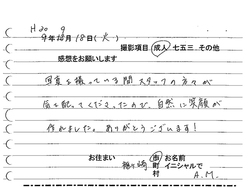 H20 9
9年10月18日(火)
撮影項目 成人 七五三 その他
感想をお願いします
写真を撮っている間スタッフの方々が
気を配ってくださったので、自然に笑顔が
作れました。ありがとうございます!
お住まい 市 お名前
町 イニシャルで
村 A.M.